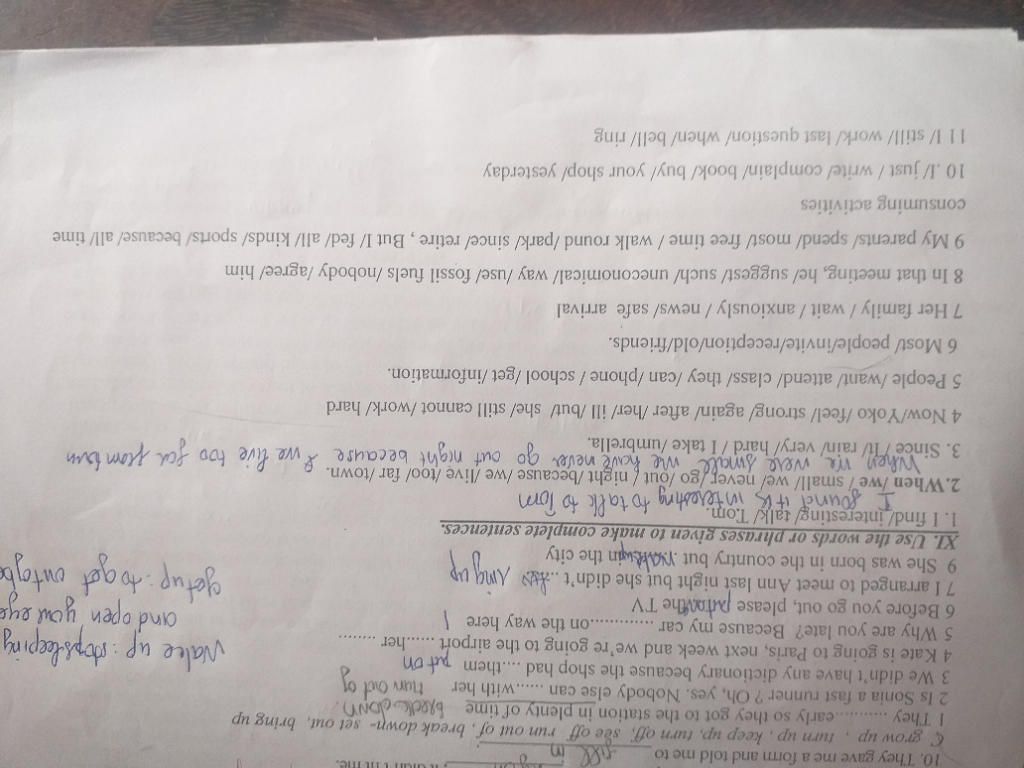 10. They gave me a form and told me to fill in it didn't fit me.
C grow up , turn up, keep up, turn off, see off, run out of, break down- set out, bring up
1 They ............early so they got to the station in plenty of time break down
2 Is Sonia a fast runner ? Oh, yes. Nobody else can ......with her run out of
3 We didn't have any dictionary because the shop had ....them put on
4 Kate is going to Paris, next week and we're going to the airport .......her .......
5 Why are you late? Because my car ..............on the way here
6 Before you go out, please the TV
7 I arranged to meet Ann last night but she didn't ... ring up
9 She was born in the country but in the city
wake up : stop sleeping
and open your eye
get up : to get
XI. Use the words or phrases given to make complete sentences.
1. I find/ interesting/ talk/ Tom.
I found it is interesting to talk to Tom
2.When /we / small/ we/ never/ go /out / night /because /we /live /too/ far /town.
When we were small we have never go out night because we live too far from town
3. Since / It/ rain/ very/ hard / I take /umbrella.
4 Now/Yoko /feel/ strong/ again/ after /her/ ill /but/ she/ still cannot /work/ hard
5 People /want/ attend/ class/ they /can /phone / school /get /information.
6 Most/ people/invite/reception/old/friends.
7 Her family / wait / anxiously / news/ safe arrival
8 In that meeting, he/ suggest/ such/ uneconomical/ way /use/ fossil fuels /nobody /agree/ him
9 My parents/ spend/ most/ free time / walk round /park/ since/ retire , But I/ fed/ all/ kinds/ sports/ because/ all/ time
consuming activities
10 .I/ just / write/ complain/ book/ buy/ your shop/ yesterday
11 I/ still/ work/ last question/ when/ bell/ ring